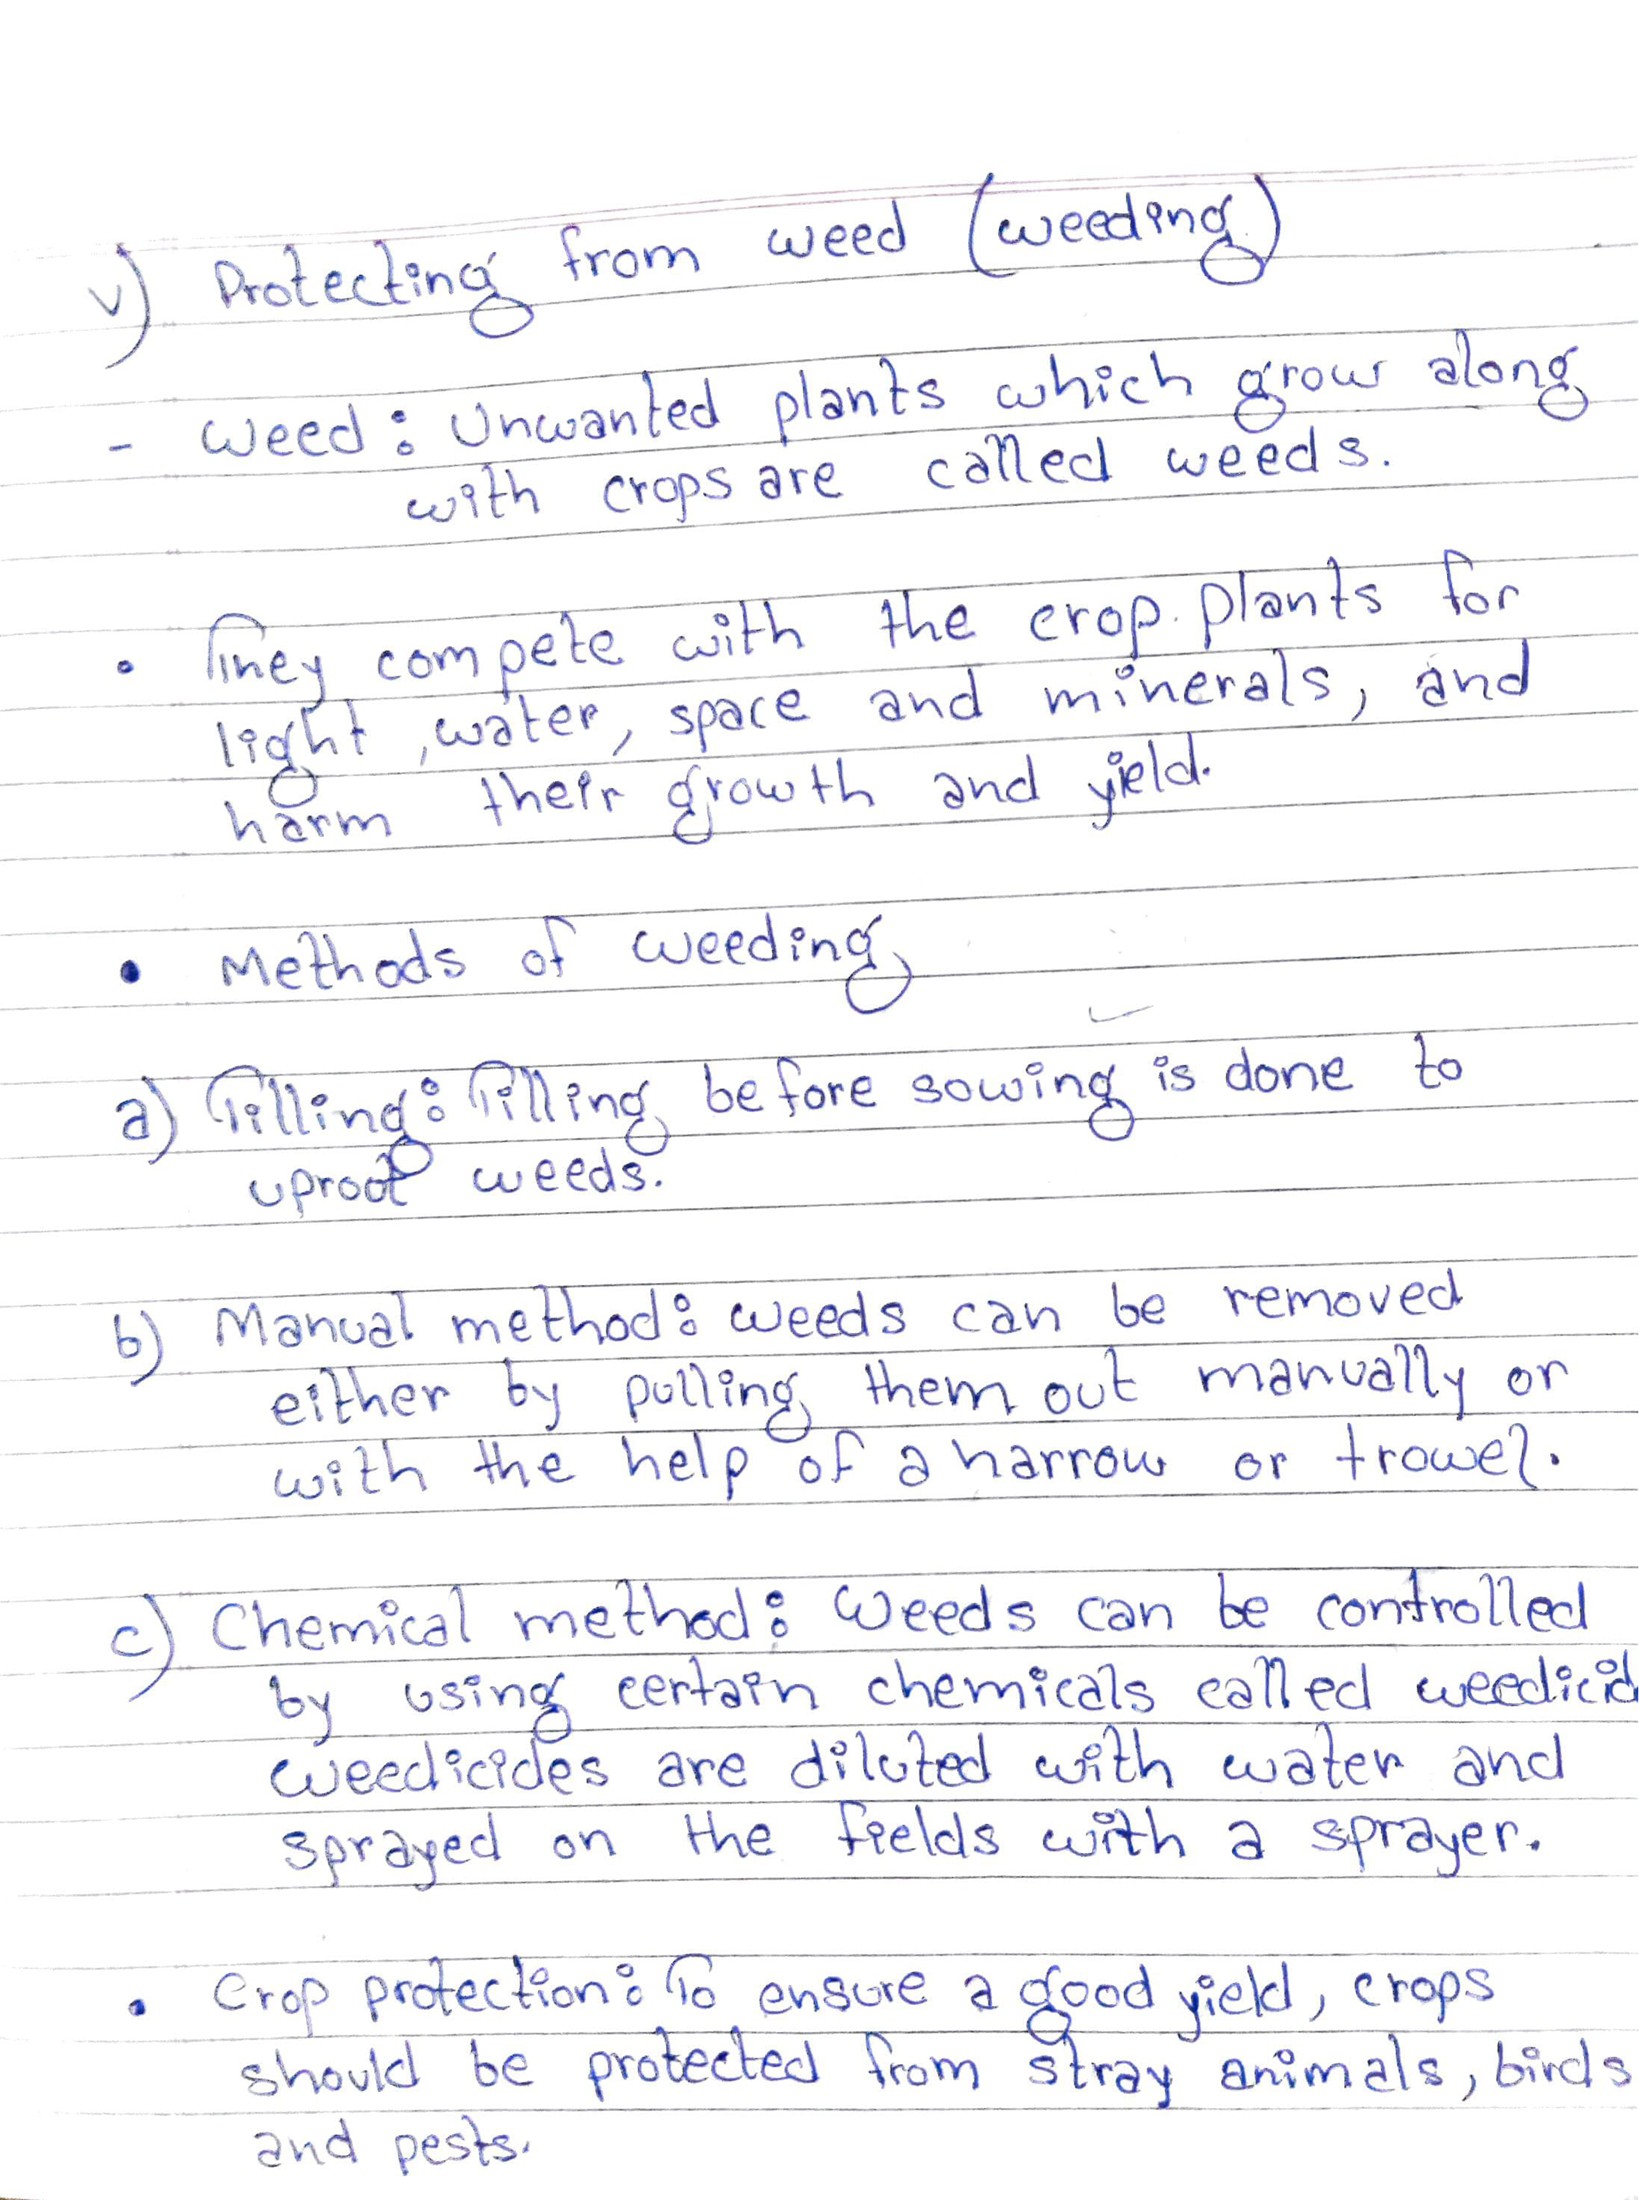 v) Protecting from weed (weeding)
- Weed : Unwanted plants which grow along
with crops are called weeds.
• They compete with the crop plants for
light, water, space and minerals, and
harm their growth and yield.
• Methods of weeding
a) Tilling: Tilling before sowing is done to
uproot weeds.
b) Manual method: weeds can be removed
either by pulling them out manually or
with the help of a harrow or trowel.
c) Chemical method: Weeds can be controlled
by using certain chemicals called weedicid
weedicides are diluted with water and
sprayed on the fields with a sprayer.
• Crop protection: To ensure a good yield, crops
should be protected from stray animals, birds
and pests.